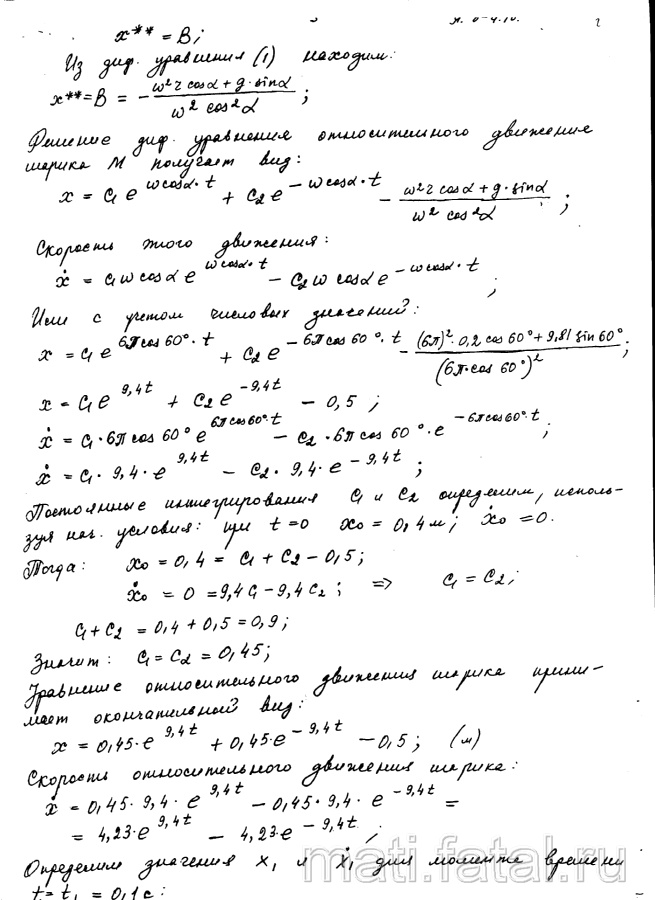 Д. 0-4.10. 2
x** = B;
Из диф. уравнения (1) находим:
x** = B = - (ω² r cosα + g·sinα) / (ω² cos²α) ;
Решение диф. уравнения относительного движения
шарика M получает вид:
x = C₁ e^(ωcosα·t) + C₂ e^(-ωcosα·t) - (ω² r cosα + g·sinα) / (ω² cos²α) ;
Скорость этого движения:
ẋ = C₁ ω cosα e^(ωcosα·t) - C₂ ω cosα e^(-ωcosα·t) ;
Или с учетом числовых значений:
x = C₁ e^(6π cos 60°·t) + C₂ e^(-6π cos 60°·t) - ((6π)²·0,2 cos 60° + 9,81 sin 60°) / (6π·cos 60°)² ;
x = C₁ e^(9,4t) + C₂ e^(-9,4t) - 0,5 ;
ẋ = C₁·6π cos 60° e^(6π cos 60°·t) - C₂·6π cos 60°·e^(-6π cos 60°·t) ;
ẋ = C₁·9,4·e^(9,4t) - C₂·9,4·e^(-9,4t) ;
Постоянные интегрирования C₁ и C₂ определим, исполь-
зуя нач. условия: при t=0 x₀ = 0,4 м; ẋ₀ = 0.
Тогда: x₀ = 0,4 = C₁ + C₂ - 0,5;
ẋ₀ = 0 = 9,4 C₁ - 9,4 C₂ ; => C₁ = C₂;
C₁ + C₂ = 0,4 + 0,5 = 0,9;
Значит: C₁ = C₂ = 0,45;
Уравнение относительного движения шарика прини-
мает окончательный вид:
x = 0,45·e^(9,4t) + 0,45·e^(-9,4t) - 0,5 ; (м)
Скорость относительного движения шарика:
ẋ = 0,45·9,4·e^(9,4t) - 0,45·9,4·e^(-9,4t) =
= 4,23·e^(9,4t) - 4,23·e^(-9,4t) ;
Определим значения x₁ и ẋ₁ для момента времени
t = t₁ = 0,1 c:
mati.fatal.ru